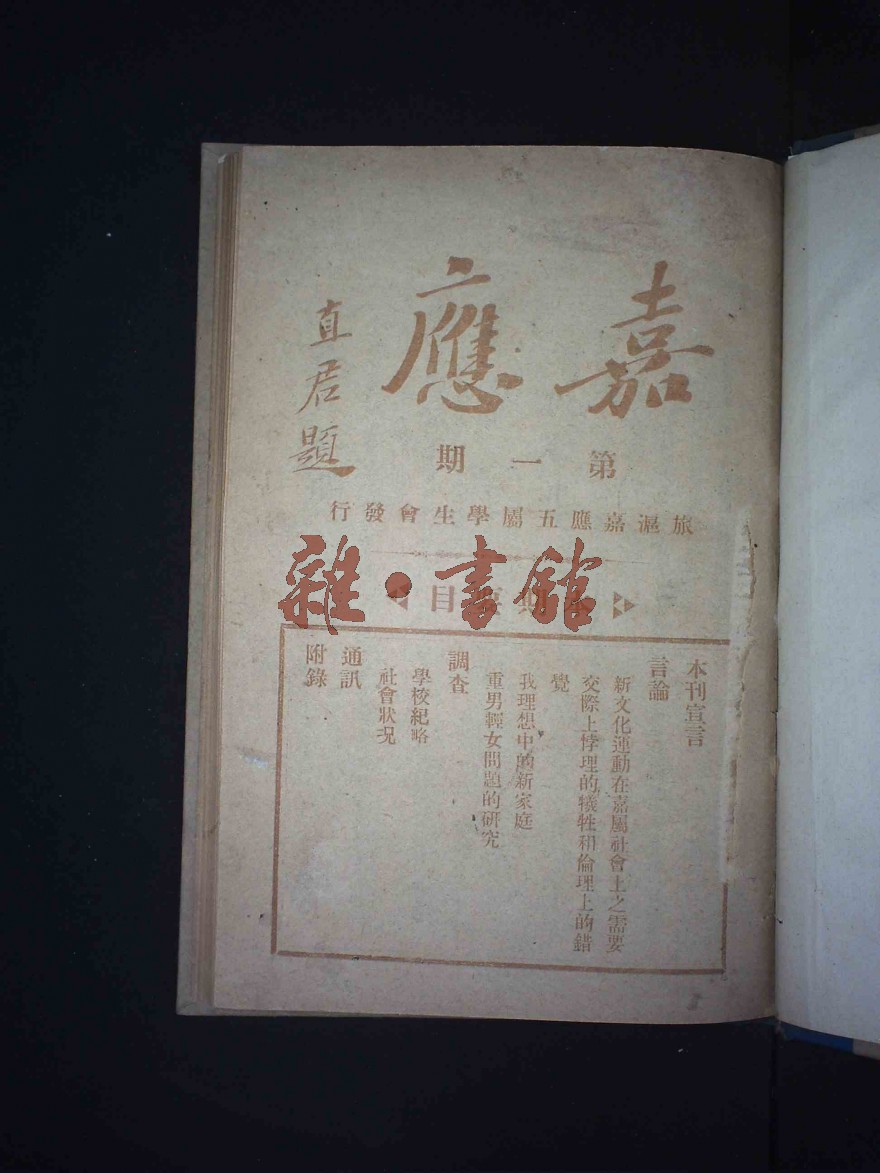 嘉應
直君題
第一期
旅滬嘉應五屬學生會發行
雜·書館
本期要目
本刊宣言
言論
新文化運動在嘉屬社會上之需要
交際上悖理的犧牲和倫理上的錯
覺
我理想中的新家庭
重男輕女問題的研究
調查
學校紀略
社會狀況
通訊
附錄